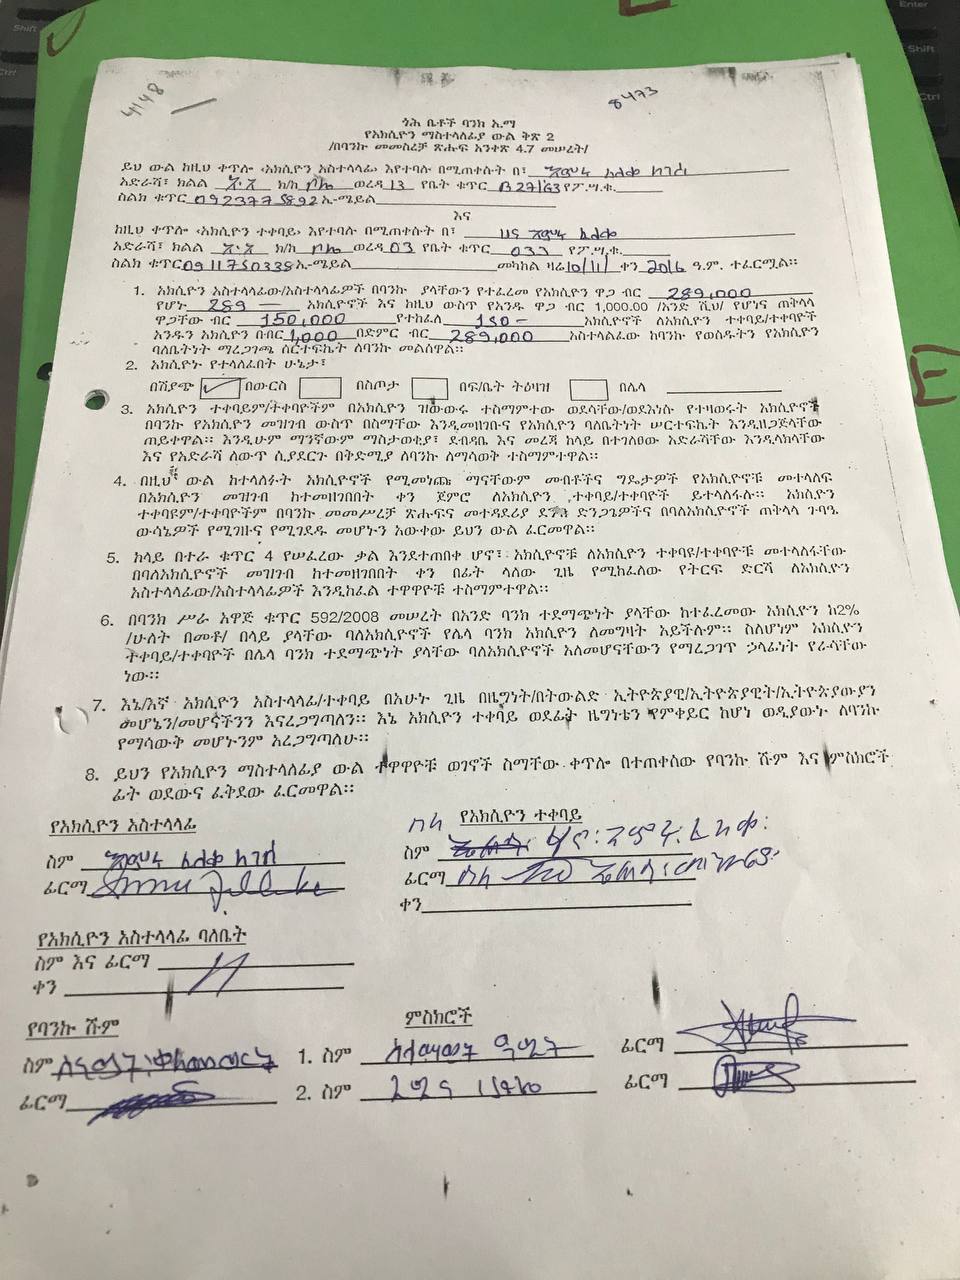 4148
8473
ጎሕ ቤቶች ባንክ ኢ.ማ
የአክሲዮን ማስተላለፊያ ውል ቅጽ 2
/በባንኩ መመስረቻ ጽሑፍ አንቀጽ 4.7 መሠረት/
ይህ ውል ከዚህ ቀጥሎ ‹አክሲዮን አስተላላፊ› እየተባሉ በሚጠቀሱት በ፤ እምሩ ለለቀ
አድራሻ፤ ክልል አ.አ ክ/ከ ቦሌ ወረዳ 13 የቤት ቁጥር B27/63 የፖ.ሣ.ቁ.
ስልክ ቁጥር 0923775892 ኢ-ሜይል
እና
ከዚህ ቀጥሎ ‹አክሲዮን ተቀባይ› እየተባሉ በሚጠቀሱት በ፤ ሀና እምሩ ለለቀ
አድራሻ፤ ክልል አ.አ ክ/ከ ቦሌ ወረዳ 03 የቤት ቁጥር 033 የፖ.ሣ.ቁ.
ስልክ ቁጥር 0911750338 ኢ-ሜይል መካከል ዛሬ 10/11/ ቀን 2016 ዓ.ም. ተፈርሟል፡፡
1. አክሲዮን አስተላላፊው/አስተላላፊዎች በባንኩ ያላቸውን የተፈረመ የአክሲዮን ዋጋ ብር 289,000
የሆኑ 289 አክሲዮኖች እና ከዚህ ውስጥ የአንዱ ዋጋ ብር 1,000.00 /አንድ ሺህ/ የሆነና ጠቅላላ
ዋጋቸው ብር 150,000 የተከፈለ 150 አክሲዮኖች ለአክሲዮን ተቀባይ/ተቀባዮች
አንዱን አክሲዮን በብር 1,000 በድምር ብር 289,000 አስተላልፈው ከባንኩ የወሰዱትን የአክሲዮን
ባለቤትነት ማረጋገጫ ሰርተፍኬት ለባንኩ መልሰዋል፡፡
2. አክሲዮኑ የተላለፈበት ሁኔታ፤
በሽያጭ ✓ በውርስ በስጦታ በፍ/ቤት ትዕዛዝ በሌላ
3. አክሲዮን ተቀባይም/ተቀባዮችም በአክሲዮን ዝውውሩ ተስማምተው ወደሳቸው/ወደእነሱ የተዛወሩት አክሲዮኖች
በባንኩ የአክሲዮን መዝገብ ውስጥ በስማቸው እንዲመዘገቡና የአክሲዮን ባለቤትነት ሠርተፍኬት እንዲዘጋጅላቸው
ጠይቀዋል፡፡ እንዲሁም ማንኛውም ማስታወቂያ፤ ደብዳቤ እና መረጃ ከላይ በተገለፀው አድራሻቸው እንዲላክላቸው
እና የአድራሻ ለውጥ ሲያደርጉ በቅድሚያ ለባንኩ ለማሳወቅ ተስማምተዋል፡፡
4. በዚህ ውል ከተላለፉት አክሲዮኖች የሚመነጩ ማናቸውም መብቶችና ግዴታዎች የአክሲዮኑ መተላለፍ
በአክሲዮን መዝገብ ከተመዘገበበት ቀን ጀምሮ ለአክሲዮን ተቀባይ/ተቀባዮች ይተላለፋሉ፡፡ አክሲዮን
ተቀባዩም/ተቀባዮችም በባንኩ መመሥረቻ ጽሑፍና መተዳደሪያ ደንብ ድንጋጌዎችና በባለአክሲዮኖች ጠቅላላ ጉባዔ
ውሳኔዎች የሚገዙና የሚገደዱ መሆኑን አውቀው ይህን ውል ፈርመዋል፡፡
5. ከላይ በተራ ቁጥር 4 የሠፈረው ቃል እንደተጠበቀ ሆኖ፤ አክሲዮኖቹ ለአክሲዮን ተቀባዩ/ተቀባዮቹ መተላለፋቸው
በባለአክሲዮኖች መዝገብ ከተመዘገበበት ቀን በፊት ላለው ጊዜ የሚከፈለው የትርፍ ድርሻ ለአክሲዮን
አስተላላፊው/አስተላላፊዎች እንዲከፈል ተዋዋዮቹ ተስማምተዋል፡፡
6. በባንክ ሥራ አዋጅ ቁጥር 592/2008 መሠረት በአንድ ባንክ ተደማጭነት ያላቸው ከተፈረመው አክሲዮን ከ2%
/ሁለት በመቶ/ በላይ ያላቸው ባለአክሲዮኖች የሌላ ባንክ አክሲዮን ለመግዛት አይችሉም፡፡ ስለሆነም አክሲዮን
ተቀባይ/ተቀባዮች በሌላ ባንክ ተደማጭነት ያላቸው ባለአክሲዮኖች አለመሆናቸውን የማረጋገጥ ኃላፊነት የራሳቸው
ነው፡፡
7. እኔ/እኛ አክሲዮን አስተላላፊ/ተቀባይ በአሁኑ ጊዜ በዜግነት/በትውልድ ኢትዮጵያዊ/ኢትዮጵያዊት/ኢትዮጵያውያን
መሆኔን/መሆናችንን እናረጋግጣለን፡፡ እኔ አክሲዮን ተቀባይ ወደፊት ዜግነቴን የምቀይር ከሆነ ወዲያውኑ ለባንኩ
የማሳውቅ መሆኑንም አረጋግጣለሁ፡፡
8. ይህን የአክሲዮን ማስተላለፊያ ውል ተዋዋዮቹ ወገኖች ስማቸው ቀጥሎ በተጠቀሰው የባንኩ ሹም እና ምስክሮች
ፊት ወደውና ፈቅደው ፈርመዋል፡፡
የአክሲዮን አስተላላፊ
ስለ የአክሲዮን ተቀባይ
ስም እምሩ ለለቀ
ስም ሀና እምሩ ለለቀ
ፊርማ
ፊርማ ስለ
ቀን
የአክሲዮን አስተላላፊ ባለቤት
ስም እና ፊርማ
ቀን
የባንኩ ሹም
ምስክሮች
ስም
1. ስም
ፊርማ
ፊርማ
2. ስም
ፊርማ
E